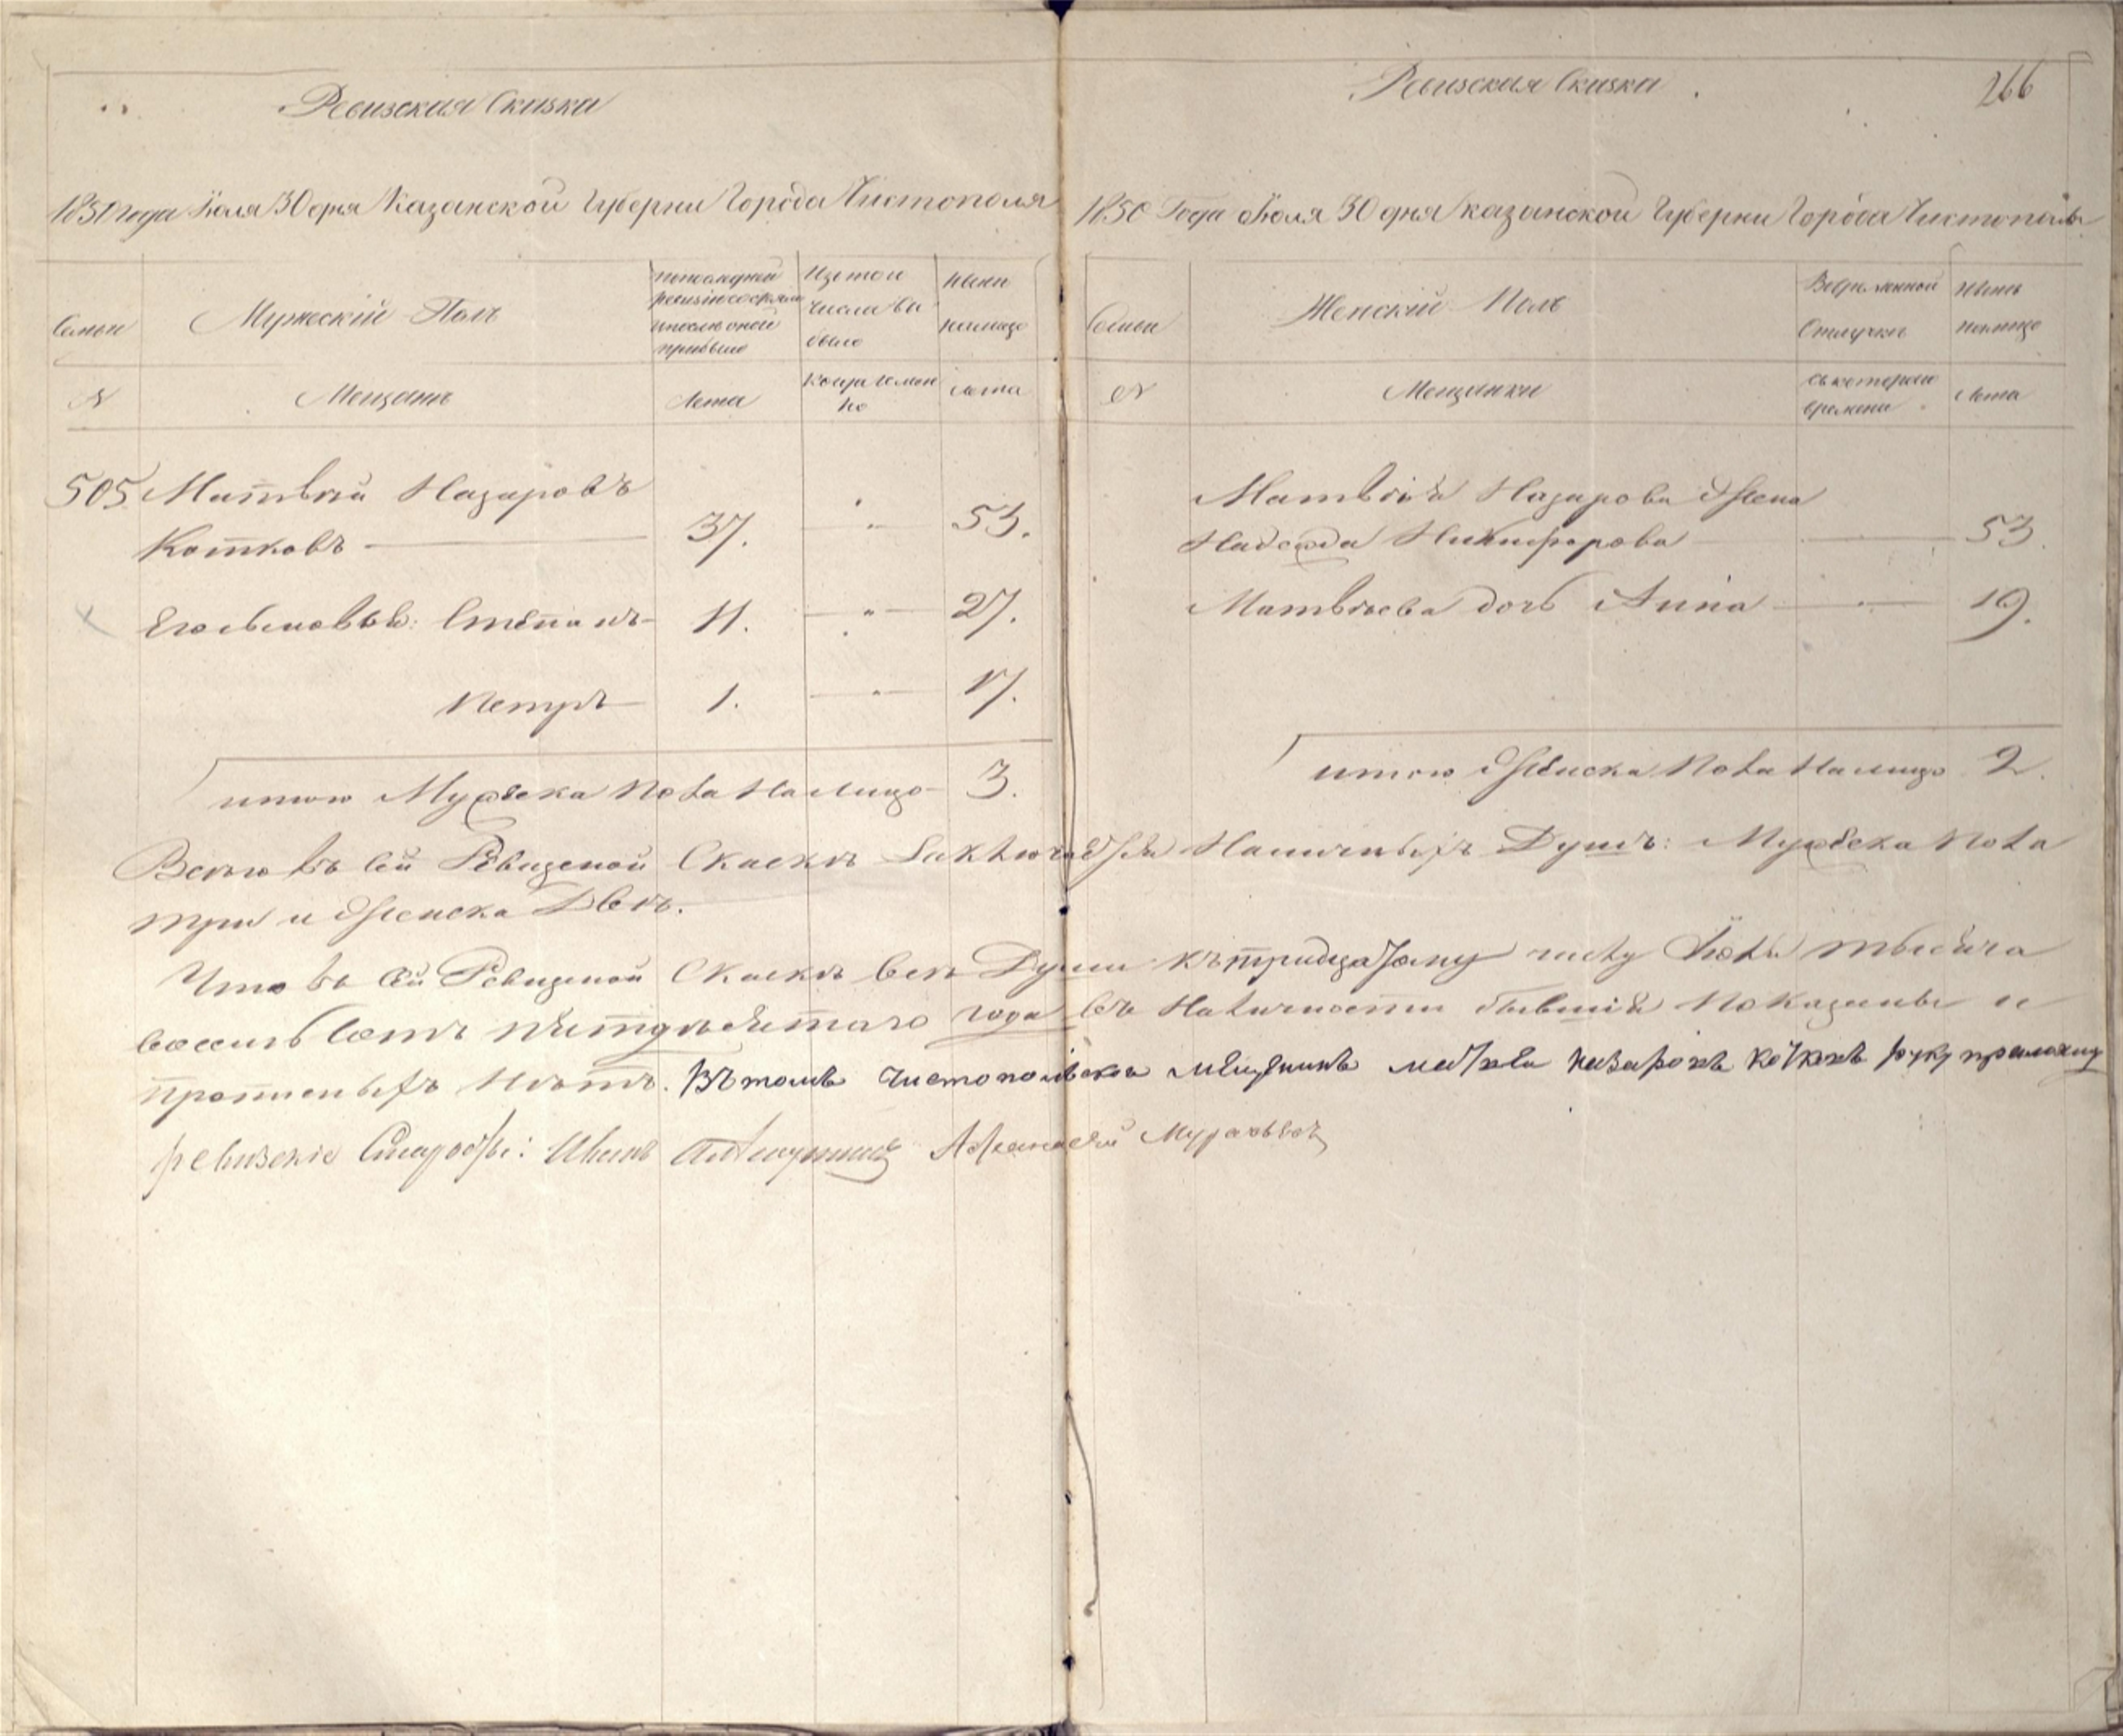 Ревизская Сказка
1850 года Іюля 30 дня Казанской Губерни Города Чистополя
Семьи
Мужескій Полъ
По последней
ревизіи состояло
и после оной
прибыло
Изъ того
числа вы
было
Ныне
налицо
N
Мещанъ
Лета
Когда имен
но
Лета
505 Матвѣй Назаровъ
Котковъ 37. " 53.
Его сыновья: Степанъ 11. " 27.
Петръ 1. " 17.
итого Мужеска Пола Налицо 3.
Ревизская Сказка
266
1850 Года Іюля 30 дня Казанской Губерни Города Чистополя
Семьи
Женскій Полъ
Во временной
Отлучке
Ныне
налицо
N
Мещанки
съ котораго
времени
Лета
Матвѣя Назарова Жена
Надежда Никифорова 53.
Матвѣева дочь Анна 19.
итого Женска Пола Налицо 2.
Всего въ сей Ревизской Сказкѣ Заключается Наличныхъ Душъ: Мужеска Пола
три и Женска Двѣ.
Что въ сей Ревизской Сказкѣ все Души къ тридцатому числу Іюля тысяча
восемьсотъ пятдесятаго года въ Наличности бывшия Показаны и
прописныхъ Нѣтъ. Въ томъ чистопольской мещенинъ матвеи назаровъ котковъ руку приложилъ
ревизские Старосты: Иванъ Афанасей Муравьевъ